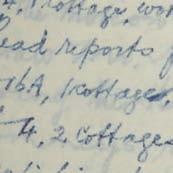 4, 1 Cottage, wor
ead reports
16A, 1 Cottage,
4, 2 Cottages